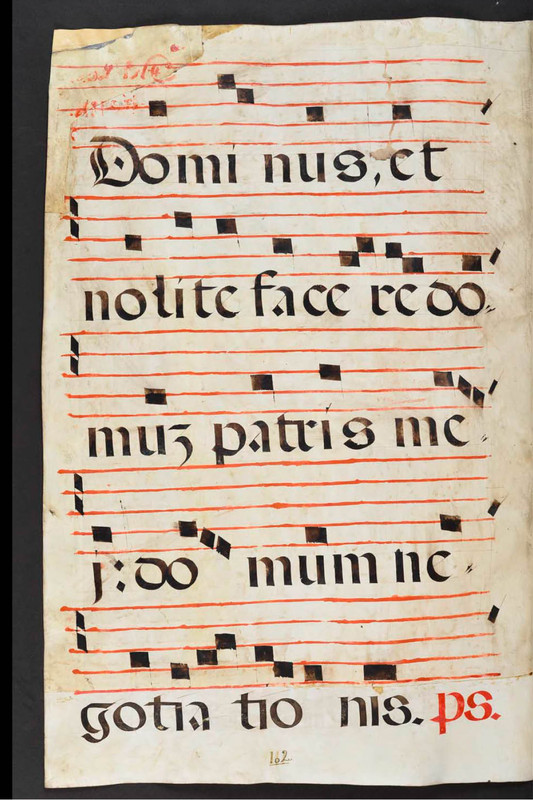 Domi nus, et
nolite face re do-
muʒ patris me-
j: do mum ne-
gotia tio nis. ps.
162